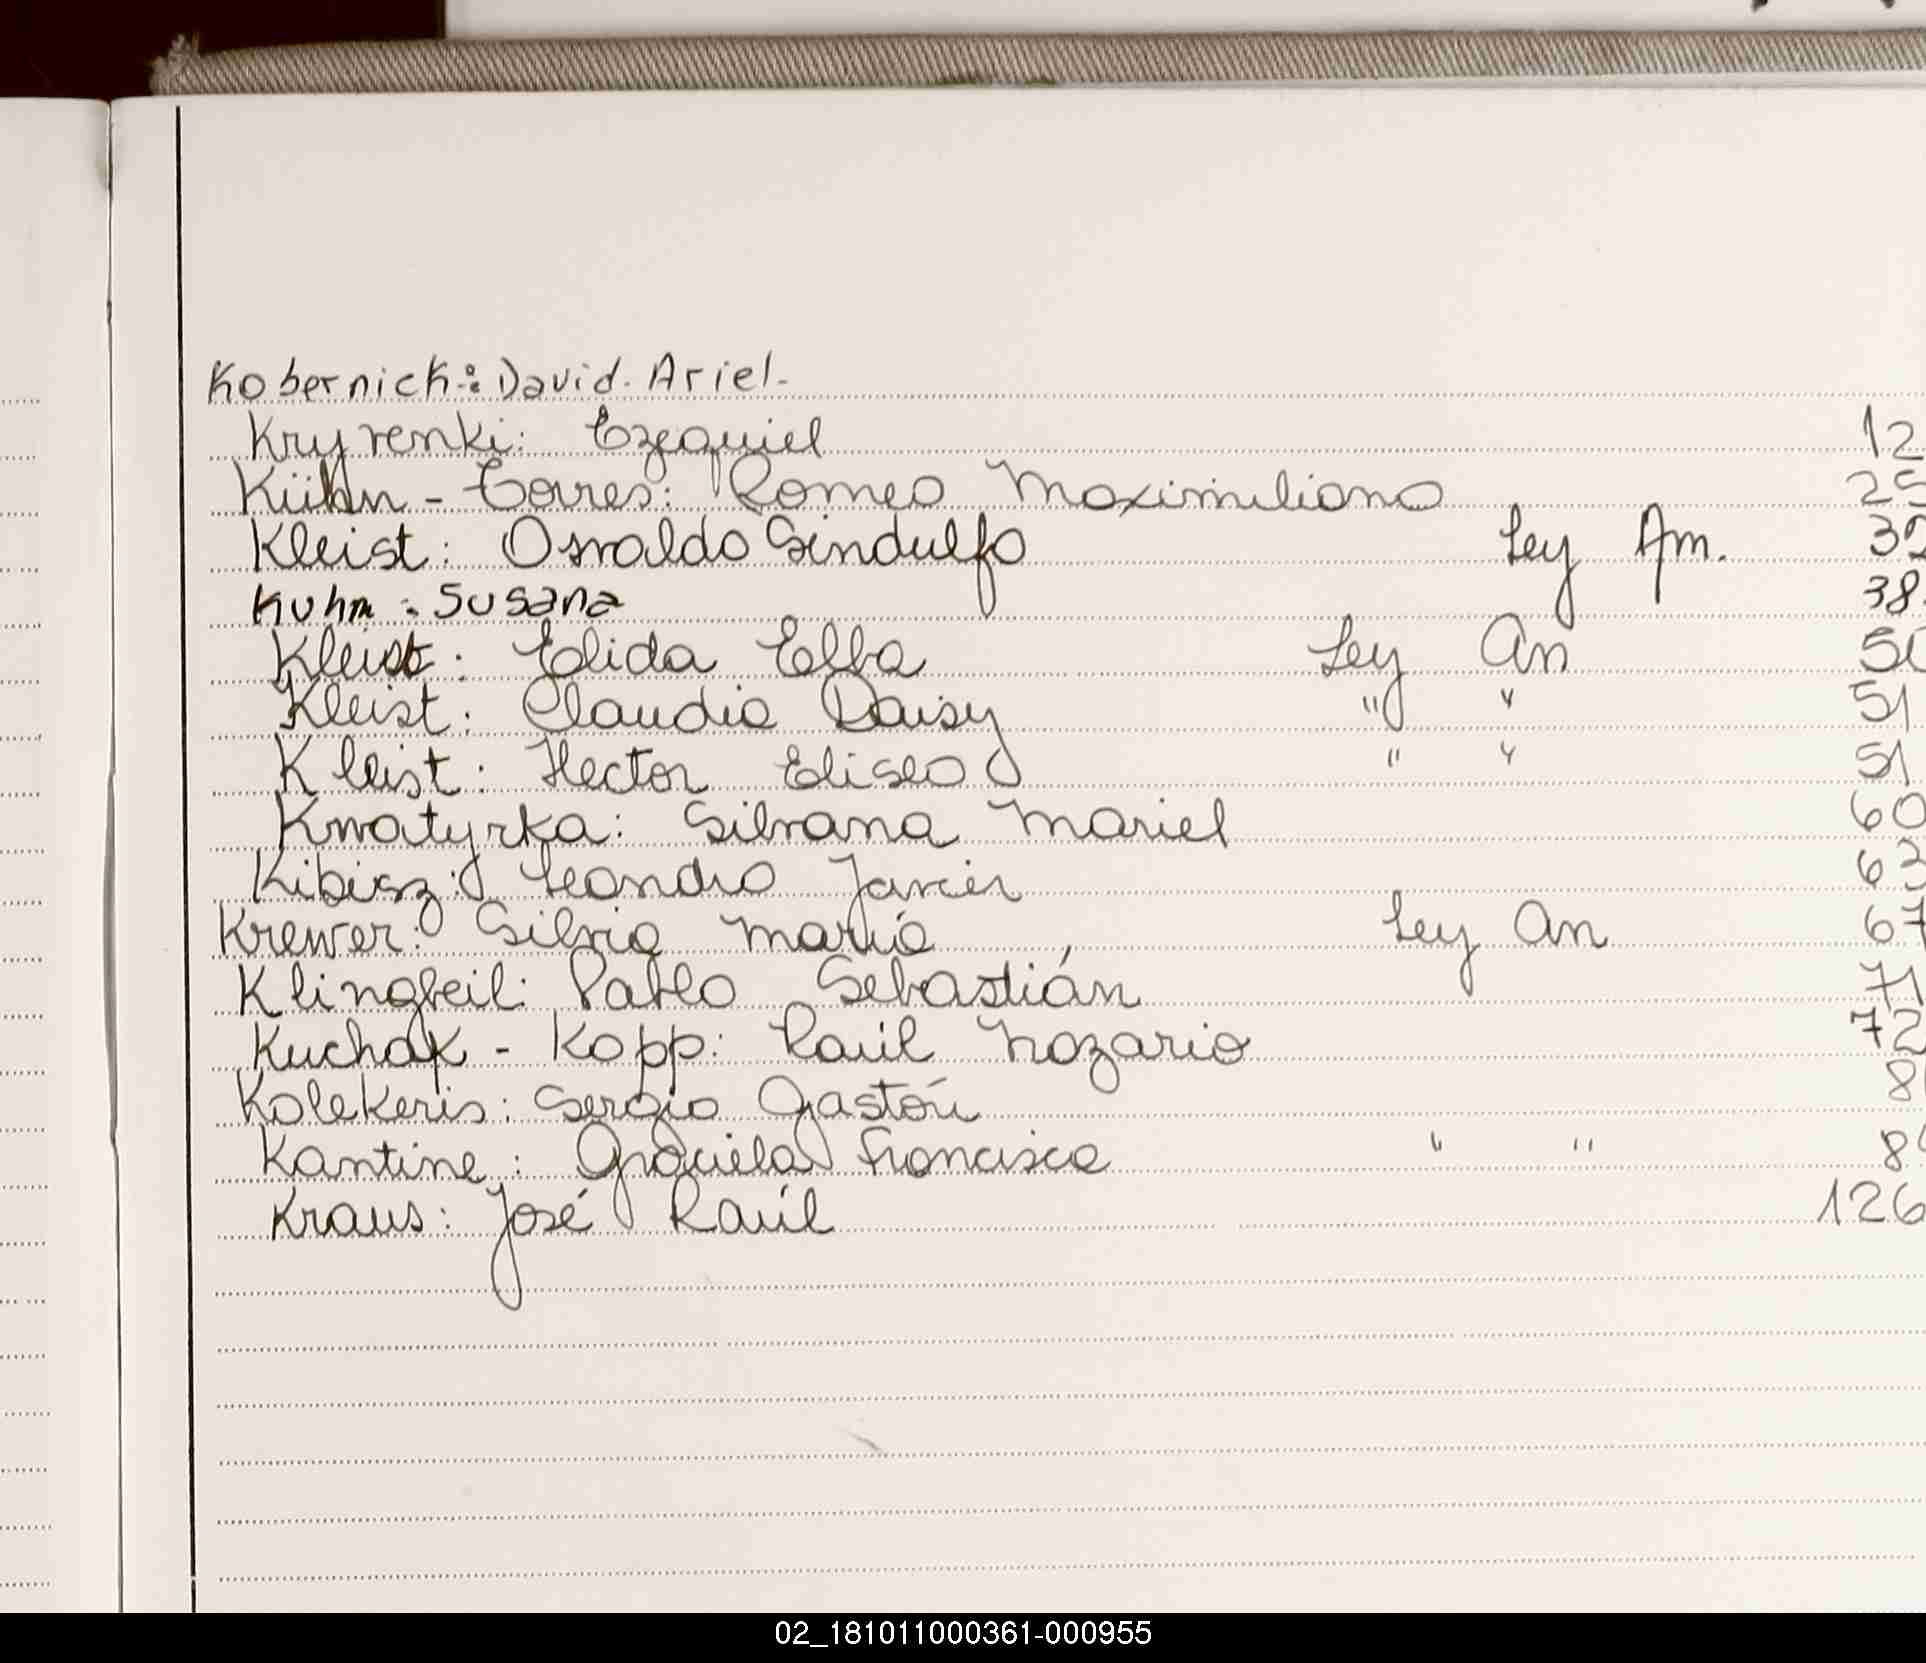 Kobernick: David. Ariel.
Kryrenki: Ezequiel 12
Kühn - Torres: Romeo Maximiliano 25
Kleist: Osvaldo Sindulfo Ley Am. 39
Kuhm: Susana 38
Kleist: Elida Elba Ley An 50
Kleist: Claudia Daisy " " 51
Kleist: Hector Eliseo " " 51
Kwatyrka: Silvana Mariel 60
Kibisz: Leandro Javier 63
Krewer: Silvia María Ley An 67
Klingbeil: Pablo Sebastián 71
Kuchak - Kopp: Raúl Nazario 72
Kolekeris: Sergio Gastón 8
Kantine: Graciela Francisca " " 8
Kraus: José Raúl 126
02_181011000361-000955